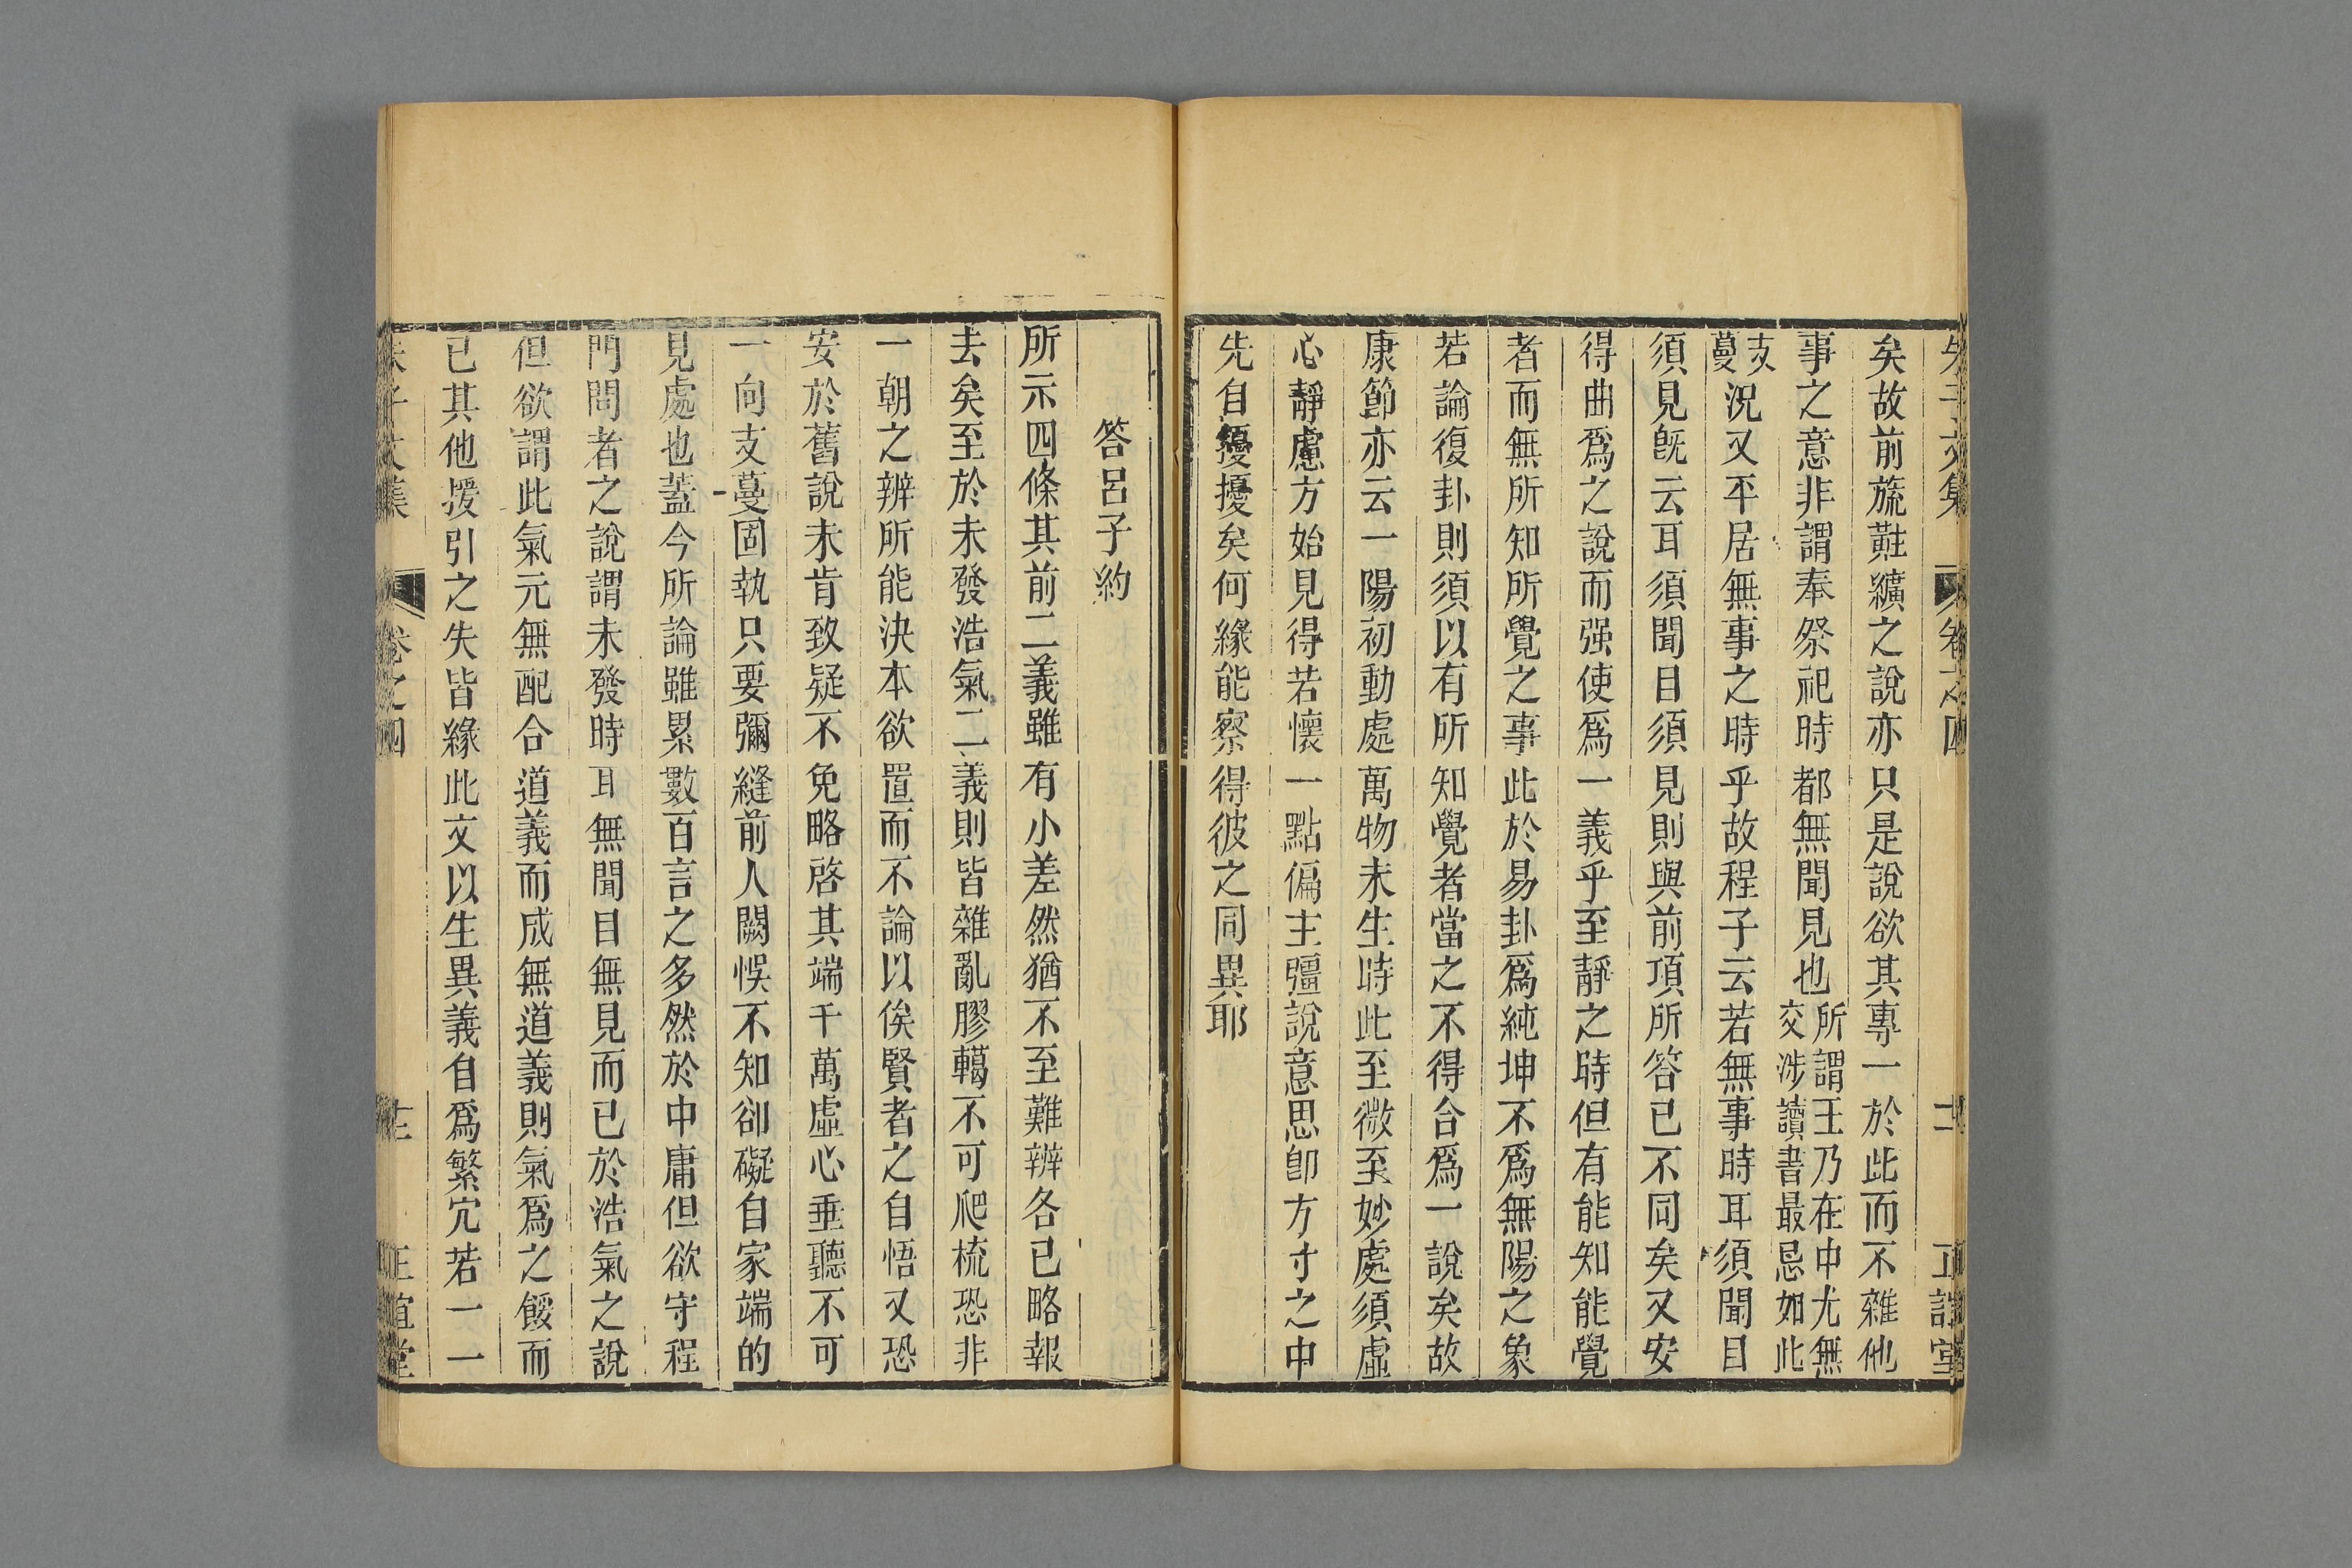 朱子文集 卷之四 十二 正誼堂
矣故前旒黈纊之說亦只是說欲其專一於此而不雜他
事之意非謂奉祭祀時都無聞見也所謂王乃在中尤無交涉讀書最忌如此
支蔓況又平居無事之時乎故程子云若無事時耳須聞目
須見旣云耳須聞目須見則與前項所答已不同矣又安
得曲爲之說而强使爲一義乎至靜之時但有能知能覺
者而無所知所覺之事此於易卦爲純坤不爲無陽之象
若論復卦則須以有所知覺者當之不得合爲一說矣故
康節亦云一陽初動處萬物未生時此至微至妙處須虛
心靜慮方始見得若懷一點偏主彊說意思卽方寸之中
先自擾擾矣何緣能察得彼之同異耶
答呂子約
所示四條其前二義雖有小差然猶不至難辨各已略報
去矣至於未發浩氣二義則皆雜亂膠轕不可爬梳恐非
一朝之辨所能決本欲置而不論以俟賢者之自悟又恐
安於舊說未肯致疑不免略啓其端千萬虛心垂聽不可
一向支蔓固執只要彌縫前人闕悞不知卻礙自家端的
見處也蓋今所論雖累數百言之多然於中庸但欲守程
門問者之說謂未發時耳無聞目無見而已於浩氣之說
但欲謂此氣元無配合道義而成無道義則氣爲之餒而
已其他援引之失皆緣此文以生異義自爲繁冗若一一
朱子文集 卷之四 十三 正誼堂